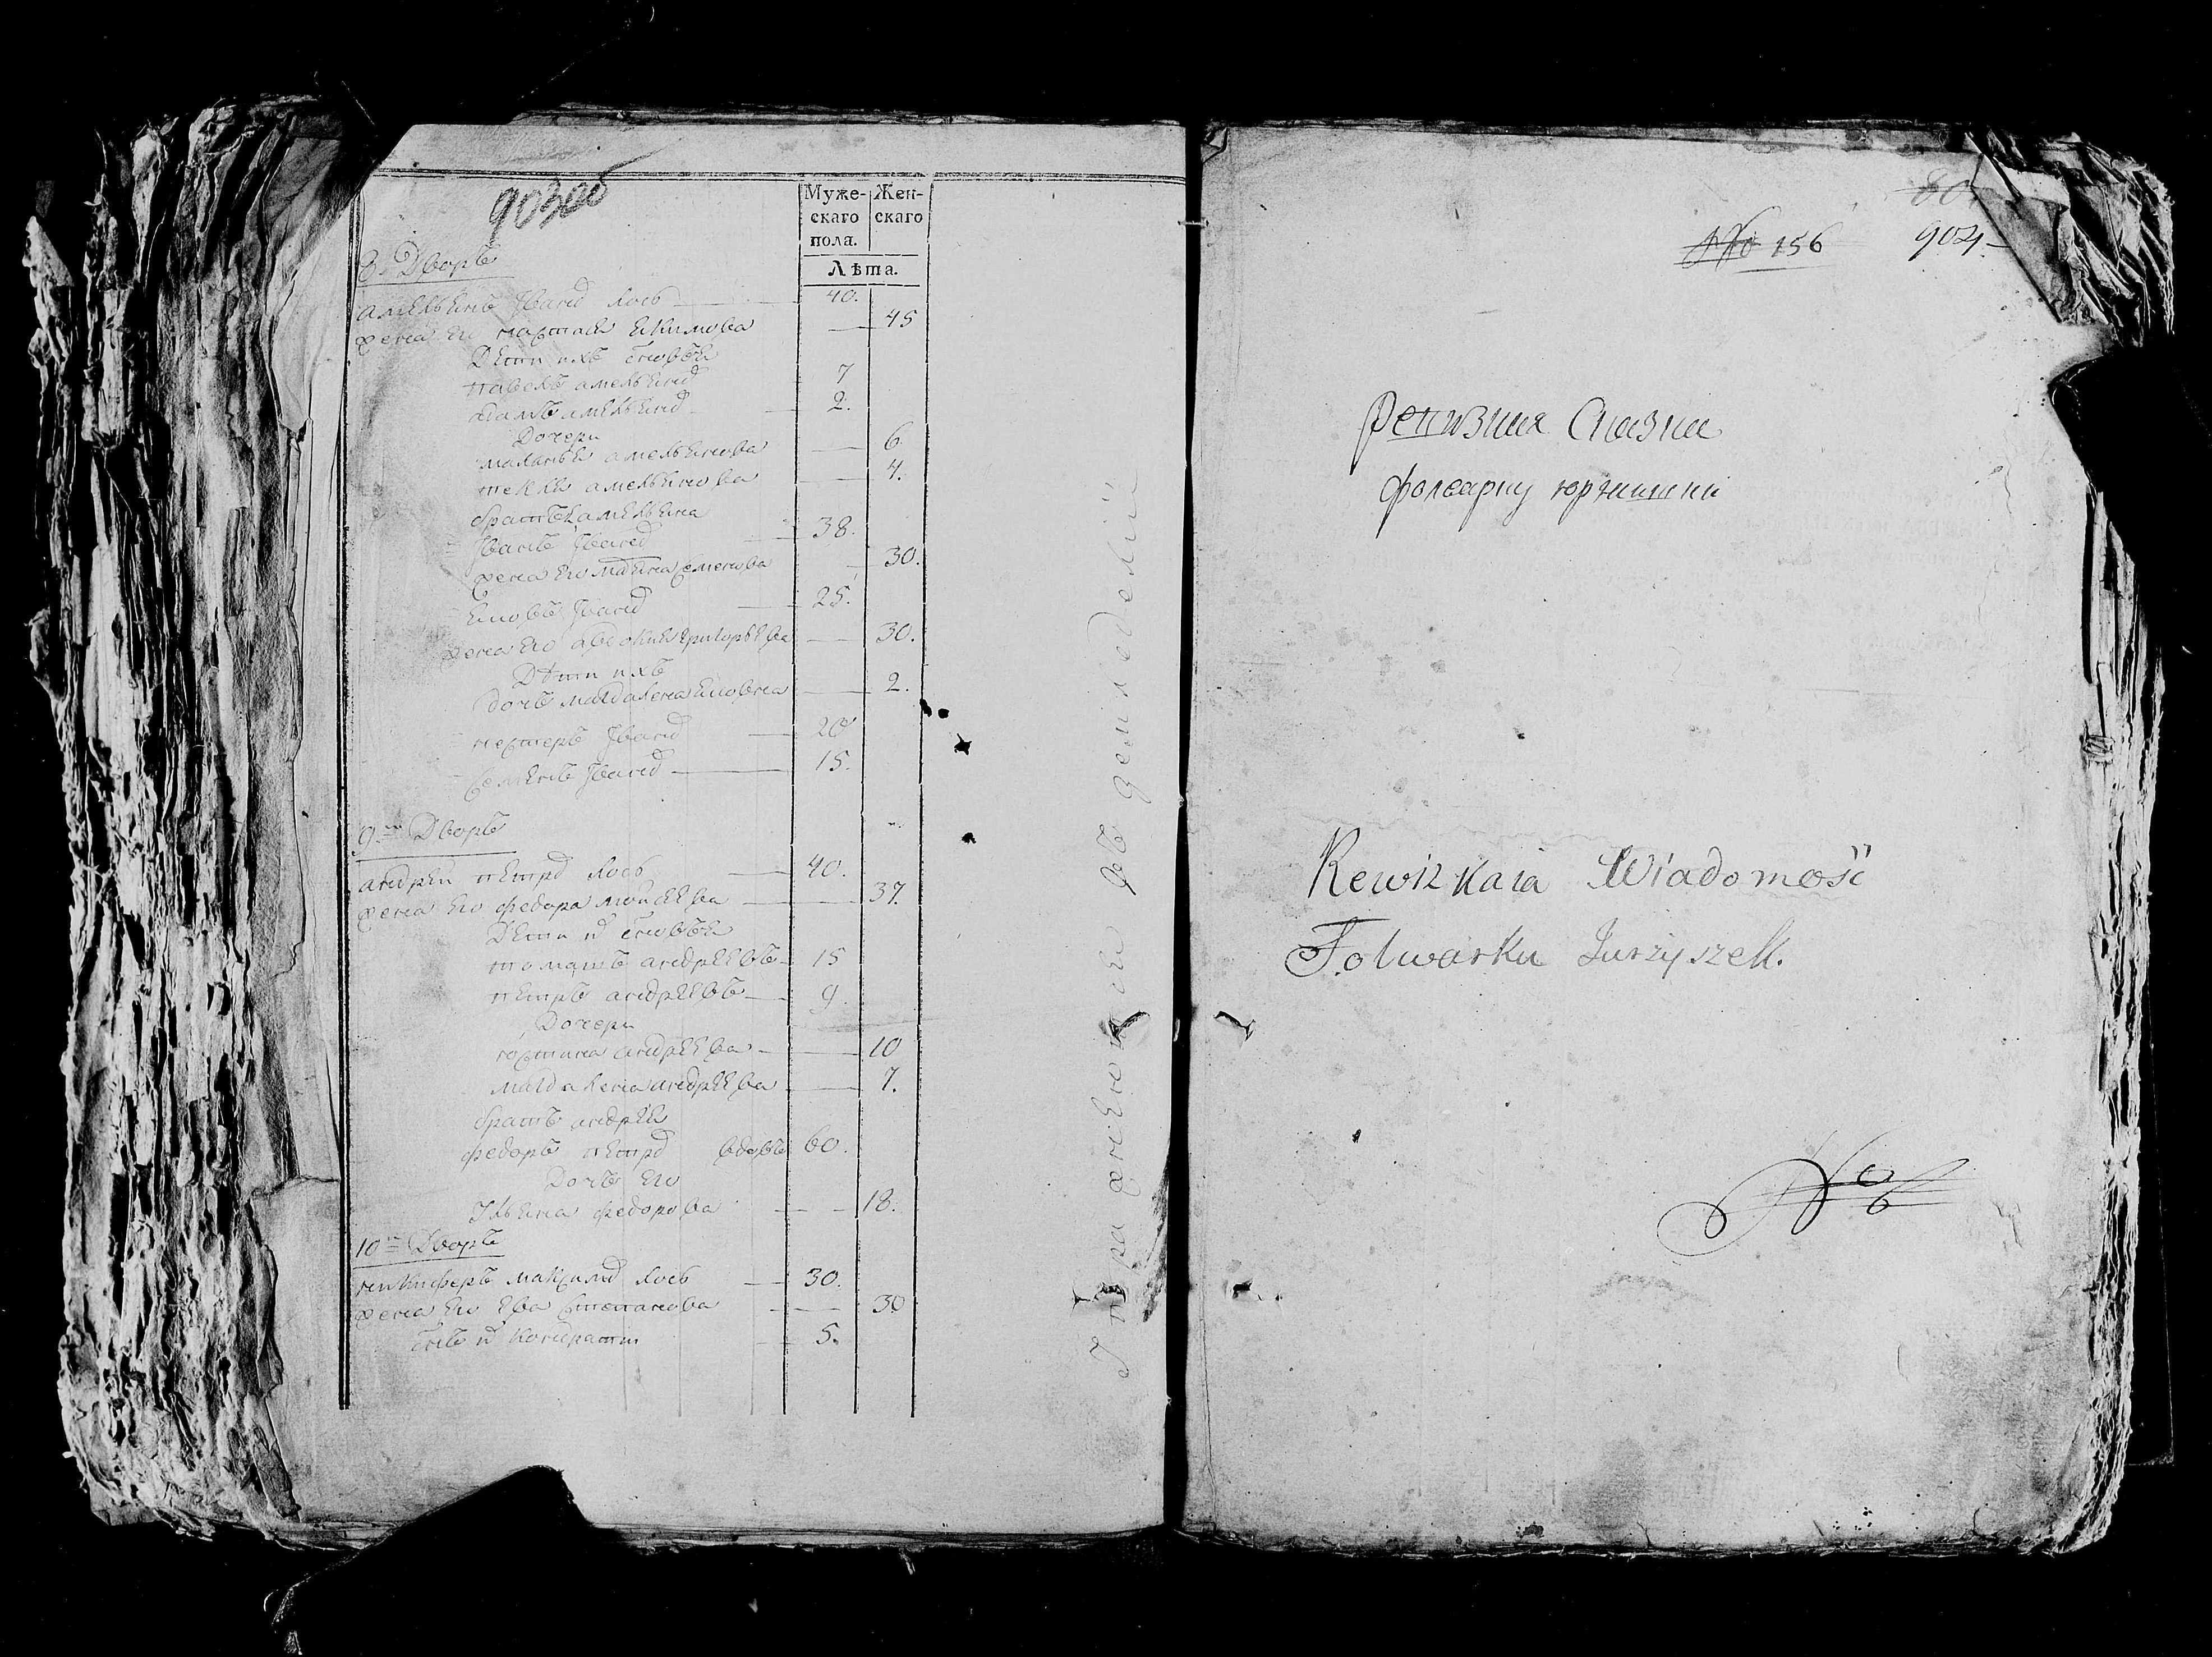 903об
Муже-
скаго
пола.
Жен-
скаго
Лѣта.
8й Дворъ
амельянъ Иванов Лось 40.
жена его настася екимова 45
Дети ихъ сыновья
павелъ амельянов 7
адамъ амельянов 2.
Дочери
маланья амельянова 6
текля амельянова 4.
братья амельяна
Иванъ Иванов 38.
жена его марина семенова 30.
Иванов 25.
жена его авдокия григорьева 30.
Дети ихъ
дочь магдалена 2.
нестеръ Иванов 20
Семенъ Иванов 15.
9й Дворъ
андрей петров Лось 40.
жена его федора мойсеева 37.
Дети и сыновья
томашъ андреевъ 15
петръ андреевъ 9.
Дочери
юстина андреева 10
магдалена андреева 7.
братъ андрея
федоръ петров вдовъ 60.
Дочь его
Ульяна федорова 18.
10й Дворъ
никиферъ максимов Лось 30.
жена его ева степанова 30
сынъ и кондратъ 5.
No 156
904
Ревизия Сказки
фолварку юржишки
Rewizkaia Wiadomość
Folwarku Jurżyszek.
No